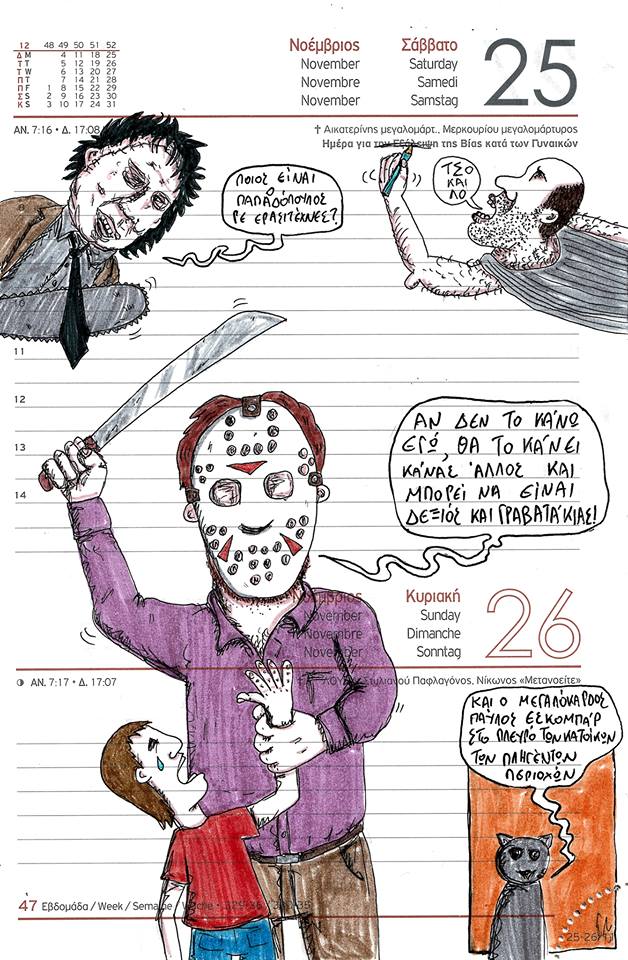 12 48 49 50 51 52
Δ M 4 11 18 25
T T 5 12 19 26
T W 6 13 20 27
Π T 7 14 21 28
Π F 1 8 15 22 29
Σ S 2 9 16 23 30
Κ S 3 10 17 24 31
Νοέμβριος Σάββατο
November Saturday
Novembre Samedi
November Samstag
25
ΑΝ. 7:16 • Δ. 17:08
† Αικατερίνης μεγαλομάρτ., Μερκουρίου μεγαλομάρτυρος
Ημέρα για την Εξάλειψη της Βίας κατά των Γυναικών
ΠΟΙΟΣ ΕΙΝΑΙ
Ο
ΠΑΠΑΔΟΠΟΥΛΟΣ
ΡΕ ΕΡΑΣΙΤΕΧΝΕΣ?
ΤΣΟ
ΚΑΙ
ΛΟ
11
12
13
14
ΑΝ ΔΕΝ ΤΟ ΚΑ'ΝΩ
ΕΓΩ', ΘΑ ΤΟ ΚΑ'ΝΕΙ
ΚΑ'ΝΑΣ 'ΑΛΛΟΣ ΚΑΙ
ΜΠΟΡΕΙ ΝΑ ΕΙΝΑΙ
ΔΕΞΙΟ'Σ ΚΑΙ ΓΡΑΒΑΤΑ'ΚΙΑΣ!
Νοέμβριος Κυριακή
November Sunday
Novembre Dimanche
November Sonntag
26
ΑΝ. 7:17 • Δ. 17:07
Στυλιανού Παφλαγόνος, Νίκωνος «Μετανοείτε»
ΚΑΙ Ο ΜΕΓΑΛΟ'ΚΑΡΔΟΣ
ΠΑ'ΥΛΟΣ ΕΣΚΟΜΠΑ'Ρ
ΣΤΟ ΠΛΕΥΡΟ' ΤΩΝ ΚΑΤΟΙ'ΚΩΝ
ΤΩΝ ΠΛΗΓΕ'ΝΤΩΝ
ΠΕΡΙΟΧΩΝ
47 Εβδομάδα / Week / Semaine / Woche •
25-26/11